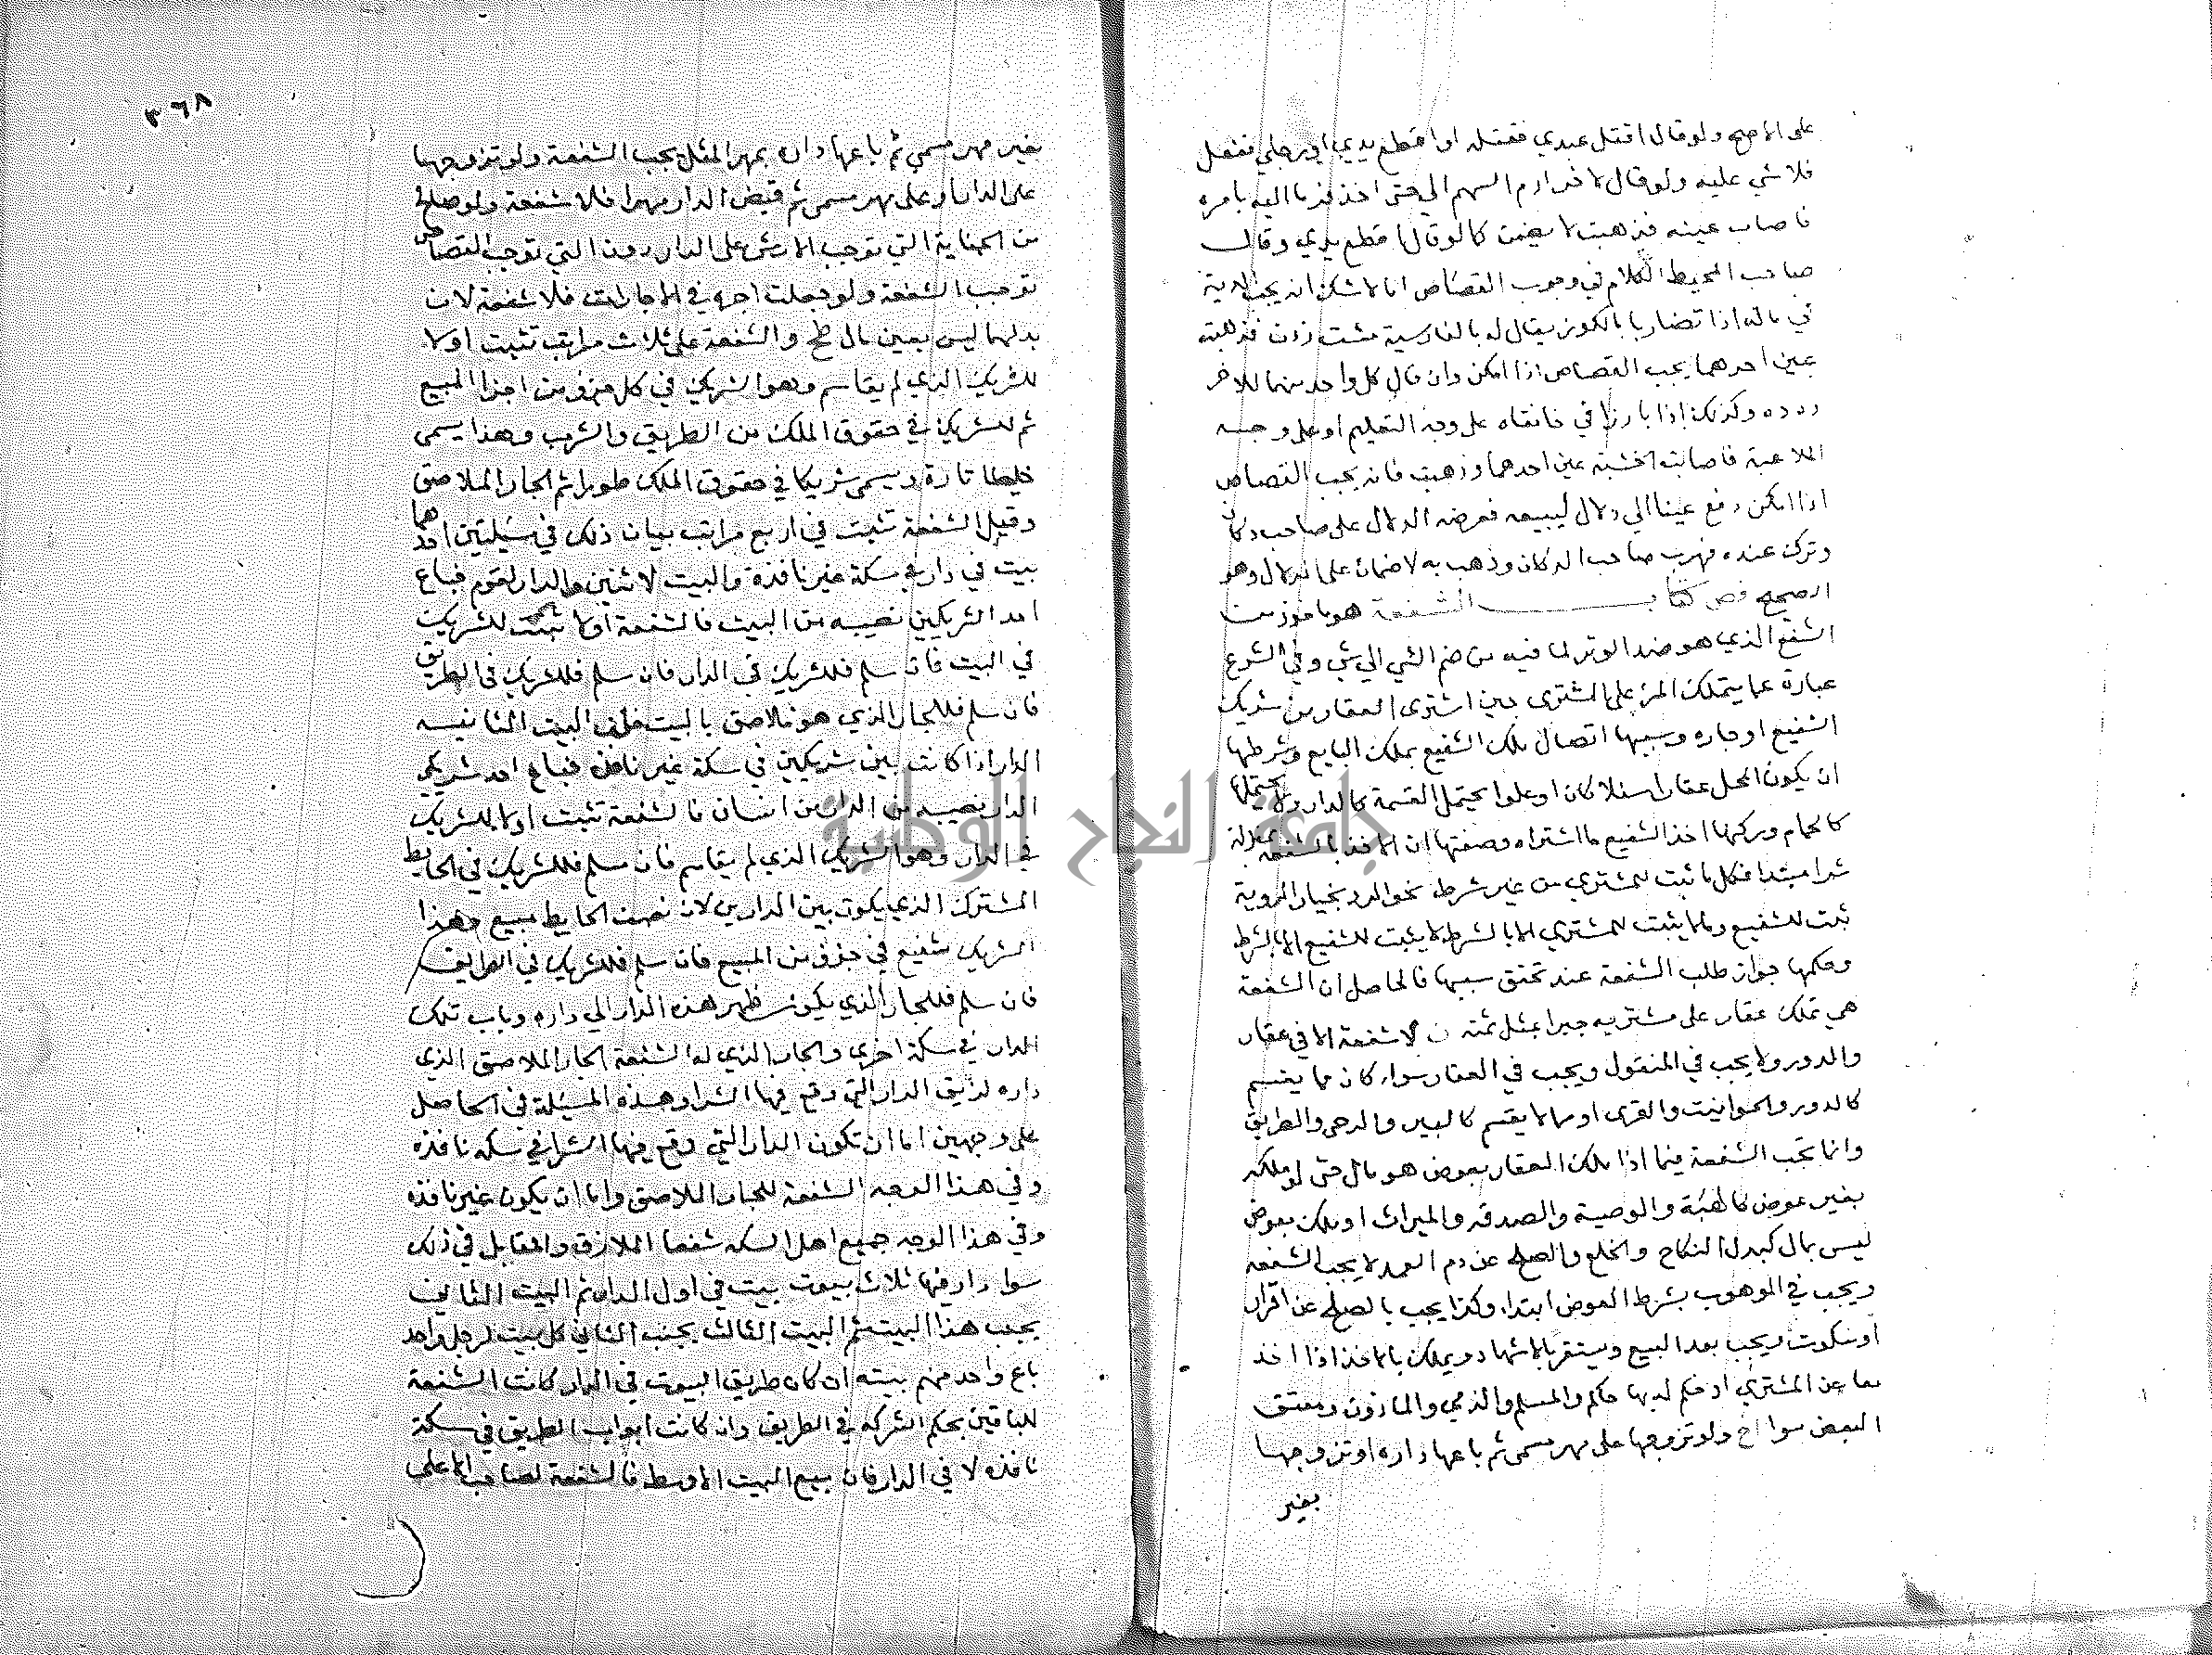 على الاصح ولو قال اقتل عبدي فقتله او اقطع يدي او رجلي ففعل
فلا شي عليه ولو قال لاخر ارم السهم الي حتى اخذ فرما اليه بامره
فاصاب عينه فذهبت لا يضمن كما لو قال اقطع يدي وقال
صاحب المحيط الكلام في وجوب القصاص اما لا شك انه يجب الدية
في ماله اذا تضاربا بالكوز يقال له بالفارسية مشت زدن فذهبت
عين احدهما يجب القصاص اذا امكن وان قال كل واحد منهما للاخر
ده ده وكذلك اذا بارزا في خانقاه على وجه التعليم او على وجه
الملاعبة فاصابت الخشبة عين احدهما وذهبت فانه يجب القصاص
اذا امكن دفع عينا الى دلال ليبيعه فعرضه الدلال على صاحب دكان
وترك عنده فهرب صاحب الدكان وذهب به لا ضمان على الدلال وهو
الصحيح فص كتاب الشفعة هو ماخوذ من
الشفع الذي هو ضد الوتر لما فيه من ضم الشي الي شي وفي الشرع
عبارة عما يتملك المرء على المشترى حين اشترى العقار من شريك
الشفيع او جاره وسببها اتصال ملك الشفيع بملك البايع وشرطها
ان يكون المحل عقارا سفلا كان او علوا يحتمل القسمة كالدار ولا يحتملها
كالحمام وركنها اخذ الشفيع ما اشتراه وصفتها ان الاخذ بالشفعة بمنزلة
شرا مبتدا فكل ما ثبت للمشتري من غير شرط نحو الرد بخيار الروية
ثبت للشفيع وما لا يثبت للمشتري الا بالشرط لا يثبت للشفيع الا بالشرط
وحكمها جواز طلب الشفعة عند تحقق سببها فالحاصل ان الشفعة
هي تملك عقار على مشتريه جبرا بمثل ثمنه ن لا شفعة الا في عقار
والدور ولا يجب في المنقول ويجب في العقار سواء كان مما يقسم
كالدور والحوانيت والقرى او مما لا يقسم كالبير والرحى والطريق
وانما تجب الشفعة فيما اذا ملك العقار بعوض هو مال حتى لو ملكه
بغير عوض كالهبة والوصية والصدقه والميراث او ملك بعوض
ليس بمال كبدل النكاح والخلع والصلح عن دم العمد لا يجب الشفعه
ويجب في الموهوب بشرط العوض ابتداء وكذا يجب بالصلح عن اقرار
او سكوت ويجب بعد البيع ويستقر بالاشهاد ويملك بالاخذ اذا اخذ
معا عن المشتري او حكم له بها حاكم والمسلم والذمي والماذون ومعتق
البعض سوا اخ ولو تزوجها على مهر مسمى ثم باعها داره او تزوجها
بغير
٣٦٨
بغير مهر مسمى ثم باعها داره بمهر المثل يجب الشفعة ولو تزوجها
على الدار او على مهر مسمى ثم قبض الدار مهرا فلا شفعة ولو صلح
من الجناية التي توجب الارش على الدار دون التي توجب القصاص
توجب الشفعة ولو جعلت اجرة في الاجارات فلا شفعة لان
بدلها ليس بعين مال ط‍ح والشفعة على ثلاث مراتب تثبت اولا
للشريك الذي لم يقاسم وهو الشريك في كل جزو من اجزا المبيع
ثم للشريك في حقوق الملك من الطريق والشرب وهذا يسمى
خليطا تارة ويسمى شريكا في حقوق الملك طورا ثم الجار الملاصق
وقيل الشفعة تثبت في اربع مراتب بيان ذلك في مسيلتين احدهما
بيت في دار في سكة غير نافذة والبيت لاثنين والدار لقوم فباع
احد الشريكين نصيبه من البيت فالشفعة اولا تثبت للشريك
في البيت فان سلم فللشريك في الدار فان سلم فللشريك في الطريق
فان سلم فللجار الذي هو ملاصق بالبيت خلف البيت الثانيه
الدار اذا كانت بين شريكين في سكة غير نافذه فباع احد شريكي
الدار نصيبه من الدار من انسان فالشفعة تثبت اولا للشريك
في الدار وهو الشريك الذي لم يقاسم فان سلم فللشريك في الحايط
المشترك الذي يكون بين الدارين لان نصف الحايط مبيع وهذا
الشريك شفيع في جزؤ من المبيع فان سلم فللشريك في الطريق
فان سلم فللجار الذي يكون ظهر هذه الدار الي داره وباب تلك
الدار في سكة اخري والجار الذي له الشفعة الجار الملاصق الذي
داره لزيق الدار التي وقع فيها الشرا وهذه المسيلة في الحاصل
على وجهين اما ان تكون الدار التي وقع فيها الشرا في سكه نافذه
وفي هذا الوجه الشفعة للجار اللاصق واما ان يكون غير نافذه
وفي هذا الوجه جميع اهل السكه شفعا الملازق والمقابل في ذلك
سوا دار فيها ثلاث بيوت بيت في اول الدار ثم البيت الثاني
بجنب هذا البيت ثم البيت الثالث بجنب الثاني كل بيت لرجل واحد
باع واحد منهم بيته ان كان طريق البيوت في الدار كانت الشفعة
للباقين بحكم الشركه في الطريق وان كانت ابواب الطريق في سكة
نافذه لا في الدار فان بيع البيت الاوسط فالشفعة لصاحب الاعلى
جامعة النجاح الوطنية